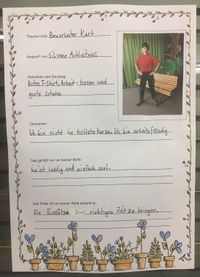 Theaterrolle: Bewohner Kurt.
Gespielt von: Simon
Aussehen und Kleidung:
Rotes T-Shirt, Arbeitshosen und
gute Schuhe.
Charakter:
Ich bin nicht die hellste Kerze. Ich bin arbeitsfreudig.
Das gefällt mir an meiner Rolle:
Er ist lustig und einfach cool.
Das finde ich an meiner Rolle schwierig:
Die Einsätze zur richtigen Zeit zu bringen.